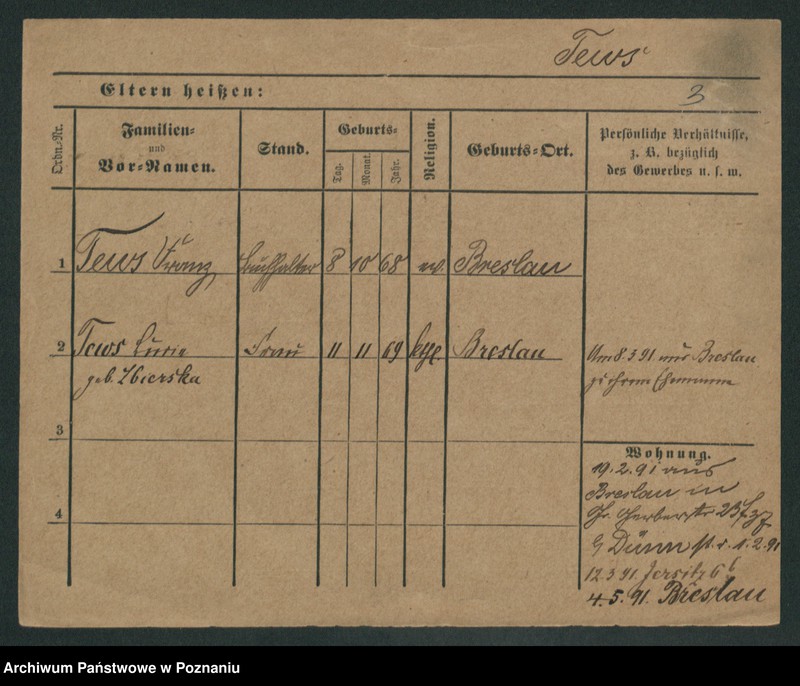 Tews
3
Eltern heißen:
Ordn.-Nr.
Familien-
und
Vor-Namen.
Stand.
Geburts-
Tag.
Monat.
Jahr.
Religion.
Geburts-Ort.
Persönliche Verhältnisse,
z. B. bezüglich
des Gewerbes u. s. w.
1 Tews Franz Buchhalter 8 10 68 ev. Breslau
2 Tews Lucie Frau 11 11 69 kth. Breslau
geb. Zbierska
Am 8.3.91 aus Breslau
zu ihrem Ehemanne
3
Wohnung.
19.2.91 aus
Breslau in
Gr. Gerberstr 23
4
Dümm 1.2.91
12.3.91. Jersitz 6
4.5.91. Breslau
Archiwum Państwowe w Poznaniu